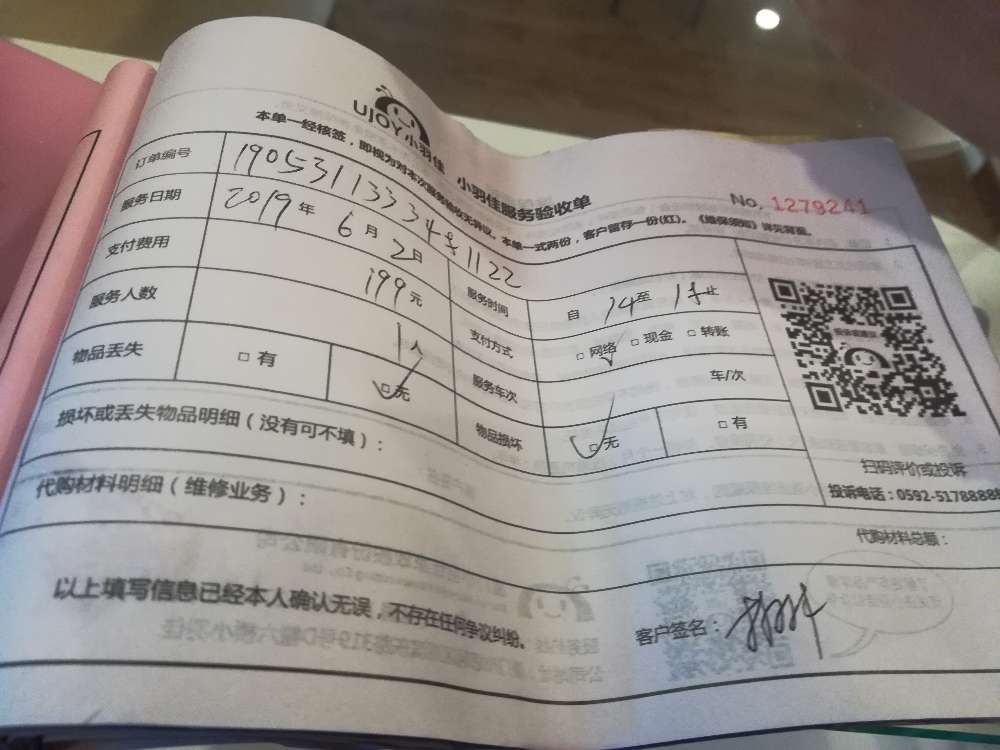 UJOY小羽佳 小羽佳服务验收单
No. 1279241
本单一经核签，即视为对本次服务验收无异议。本单一式两份，客户留存一份(红)。《维保须知》详见背面。
订单编号
服务日期 2019年6月2日 服务时间 自14至 止
支付费用 199元 支付方式 □网络 □现金 □转账
服务人数 1人 服务车次 车/次
物品丢失 □有 □无 物品损坏 □无 □有
损坏或丢失物品明细（没有可不填）：
扫码评价或投诉
投诉电话：0592-5178888
代购材料明细（维修业务）：
代购材料总额：
以上填写信息已经本人确认无误，不存在任何争议纠纷。
客户签名：